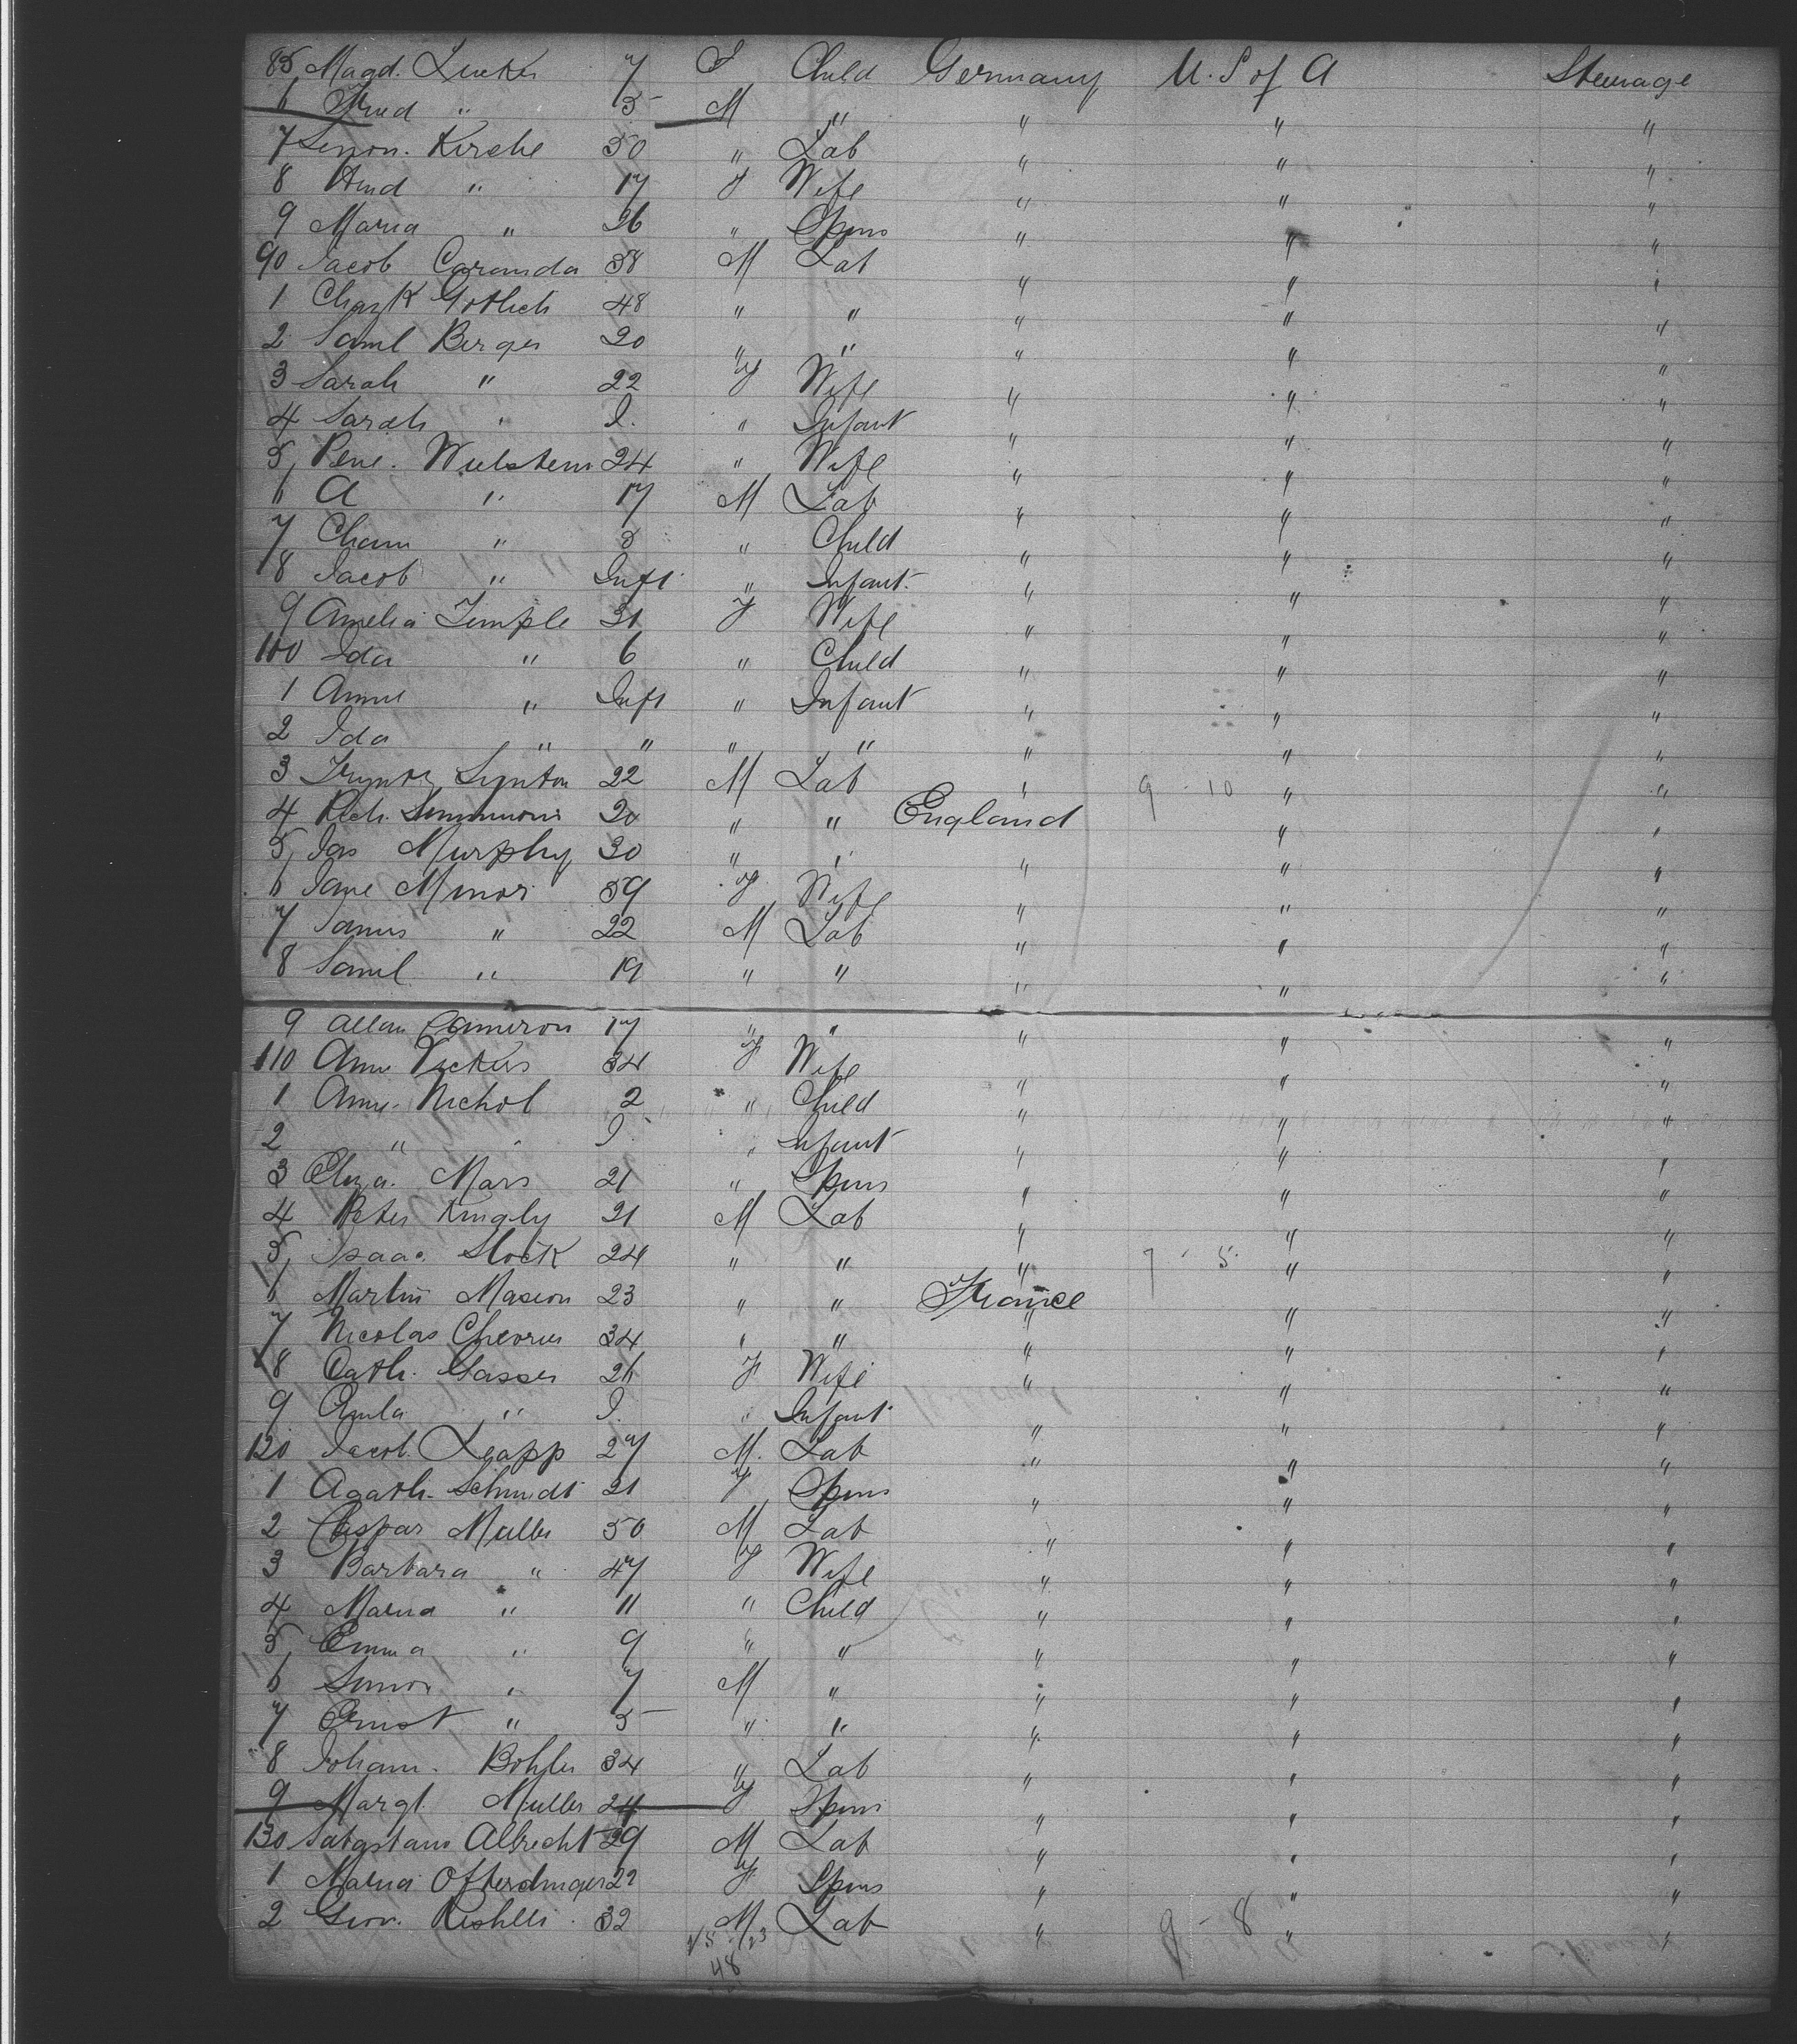 85 Magd. Lucker 7 F Child Germany U. S of A Steerage
6 Frud " 5 M " " " "
7 Simon. Kirche 50 " Lab " " "
8 Amd " 17 F Wife " " "
9 Maria " 26 " Spins " " "
90 Jacob Caranda 38 M Lab " " "
1 Chazk Gotlich 48 " " " " "
2 Saml Berger 20 " " " " "
3 Sarah " 22 F Wife " " "
4 Sarah " I. " Infant " " "
5 Pene. Wulstein 24 " Wife " " "
6 A " 17 M Lab " " "
7 Chaim " 3 " Child " " "
8 Jacob " Inft " Infant " " "
9 Amelia Temple 31 F Wife " " "
100 Ida " 6 " Child " " "
1 Annie " Inft " Infant " " "
2 Ida " " " " " " "
3 Synton 22 M Lab " 9 - 10 " "
4 Rich. Simmons 20 " " England " "
5 Jas Murphy 30 " " " " "
6 Jane Minor 59 F Wife " " "
7 James " 22 M Lab " " "
8 Saml " 19 " " " " "
9 Allan Cameron 17 " " " " "
110 Ann Vickers 34 F Wife " " "
1 Amy. Nichol 2 " Child " " "
2 " " I. " Infant " " "
3 Eliza. Mars 21 " Spins " " "
4 Peter Kingly 21 M Lab " " "
5 Isaac Slock 24 " " " 7 - 5 " "
6 Martin Masion 23 " " France " "
7 Nicolas Chevrus 34 " " " " "
8 Cath. Gasser 26 F Wife " " "
9 Amla " I. " Infant " " "
120 Jacob. Leapp 27 M. Lab " " "
1 Agath. Schmidt 21 F Spins " " "
2 Caspar Muller 50 M Lab " " "
3 Barbara " 47 F Wife " " "
4 Maria " 11 " Child " " "
5 Emma " 9 " " " " "
6 Simon " 7 M " " " "
7 Ernst " 5 " " " " "
8 Johann. Bohler 34 " Lab " " "
9 Margt. Muller 24 F Spins " " "
130 Albrecht 29 M Lab " " "
1 Maria Ofterdinger 22 F Spins " " "
2 Giov. Reshlli 32 M Lab " 9 - 8 " "
25 / 23
48